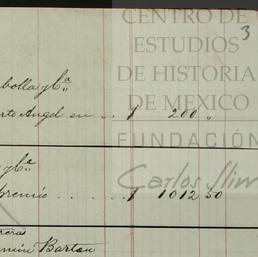 CENTRO DE
ESTUDIOS
3
DE HISTORIA
DE MEXICO
FUNDACIÓN
Carlos Slim
bolla y Ca.
rto Angel en . . $ 200 "
y Ca.
premio . . . . . $ 1012 50
reras
min Barton